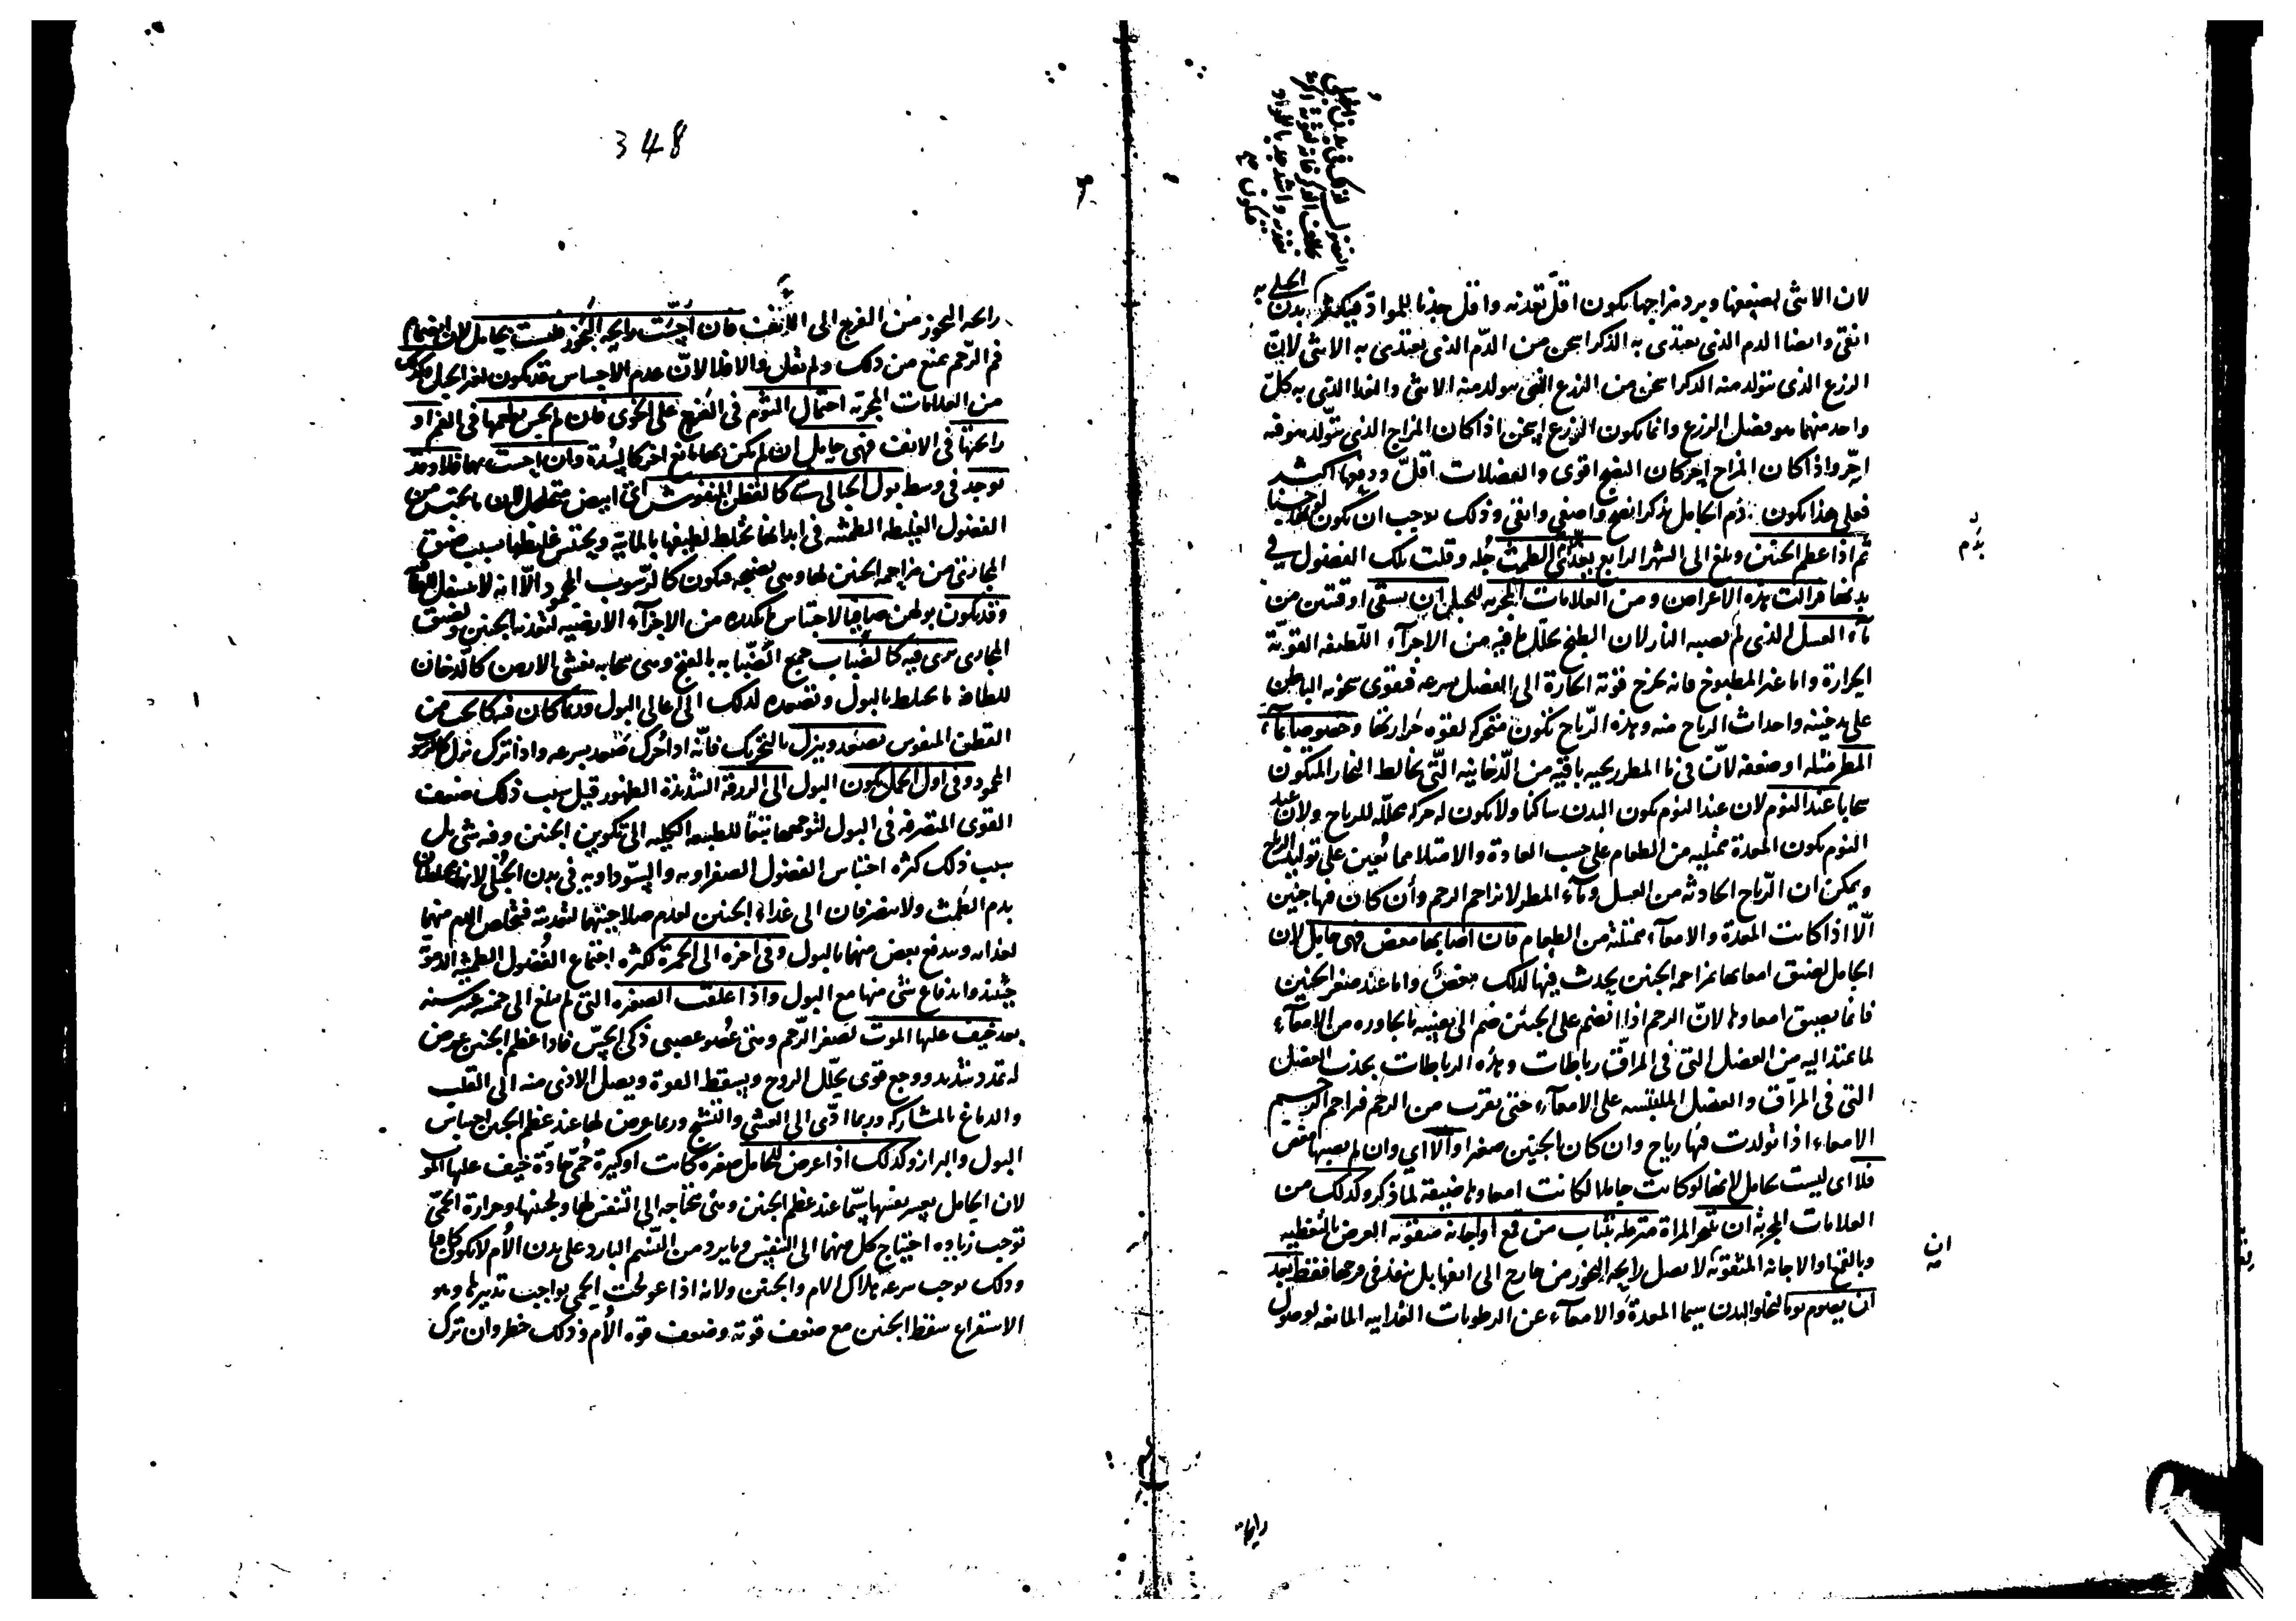 لان الانثى لضعفها وبرد مزاجها يكون اقل تغذية واقل جذبا للمواد فيكثر بدن الحبلى به
انقى وايضا الدم الذى يغتذى به الذكر اسخن من الدم الذى يغتذى به الانثى لان
الزرع الذى يتولد منه الذكر اسخن من الزرع الذى يتولد منه الانثى والغذا الذى به كل
واحد منهما هو فضل الزرع وانما يكون الزرع اسخن اذا كان المزاج الذى يتولد هو فيه
احر واذا كان المزاج احر كان النضج اقوى والفضلات اقل ودفعها اكثر
فعلى هذا يكون دم الحامل بذكر انضج واصفى وانقى وذلك يوجب ان يكون لونها حسنا
ثم اذا عظم الجنين وبلغ الى الشهر الرابع يغتذى الطمث جله وقلت تلك الفضول فى
بدنها فزالت هذه الاعراض ومن العلامات المجربة للحبل ان يسقى اوقيتين من
ماء العسل الذى لم تصبه النار لان الطبخ يحلل ما فيه من الاجزاء اللطيفة القوية
الحرارة واما غير المطبوخ فانه يخرج قوته الحارة الى الفضل بسرعة فيقوى سخونة الباطن
على تدخينه واحداث الرياح منه وهذه الرياح تكون متحركة لقوة حرارتها وخصوصا بماء
المطر مثله او ضعفه لان فى ماء المطر ريحية باقية من الدخانية التى تخالط البخار المتكون
سحابا عند النوم لان عند النوم يكون البدن ساكنا ولا يكون له حركة محللة للرياح ولان عند
النوم يكون المعدة ممتلية من الطعام على حسب العادة والامتلا مما يعين على توليد الرياح
ويمكن ان الرياح الحادثة من العسل وماء المطر لا تزاحم الرحم وان كان فيها جنين
الا اذا كانت المعدة والامعاء ممتلئة من الطعام فان اصابها مغص فهى حامل لان
الحامل لضيق امعائها بمزاحمة الجنين يحدث فيها لذلك مغص واما عند صغر الجنين
فانما يضيق امعاوها لان الرحم اذا انضم على الجنين ضم الى نفسه ما يجاوره من الامعاء
لما يمتد اليه من العضل التى فى المراق رباطات وهذه الرباطات يجذب العضل
التى فى المراق والعضل الملتبسة على الامعاء حتى يقرب من الرحم فيزاحم الرحم
الامعاء اذا تولدت فيها رياح وان كان الجنين صغيرا والا اى وان لم يصبها مغص
فلا اى ليست بحامل لانها لو كانت حاملا لكانت امعاوها ضيقة لما ذكر وكذلك من
العلامات المجربة ان تتبخر المراة متزملة بثياب من قمع او اجانة مثقوبة الغرض بالتغطية
وبالقمع او الاجانة المثقوبة لا تصل رايحة البخور من خارج الى انفها بل ينفذ فى فرجها فقط بعد
ان يصوم يوما ليخلو البدن سيما المعدة والامعاء عن الرطوبات الغذائية المانعة لوصول
رايحة
348
رايحة البخور من الفرج الى الانف فان احست رايحة البخور فليست بحامل لان انضمام
فم الرحم يمنع من ذلك ولم يقل والا فلا لان عدم الاحساس قد يكون لغير الحبل وكذلك
من العلامات المجربة احتمال الثوم فى الفرج على الخوى فان لم تحس بطعمها فى الفم او
رايحتها فى الانف فهى حامل ان لم يكن بها مانع اخر كالسدة وان احست بها فلا وقد
توجد فى وسط بول الحبالى شئ كالقطن المنفوش اى ابيض متخلخل لان ما يحتبس من
الفضول الغليظة الطمثية فى ابدانها يختلط لطيفها بالمائية ويحتبس غليظها بسبب ضيق
المجارى من مزاحمة الجنين لها وهى نضيجة فيكون كالرسوب المحمود الا انه لا يستفل
وقد يكون بولهن صافيا لاحتباس ما يكدره من الاجزاء الارضية لتغذية الجنين ولضيق
المجارى يرى فيه كالضباب جمع الضبابة بالفتح وهى سحابة تغشى الارض كالدخان
للطافة ما يختلط بالبول وتصعده لذلك الى اعالى البول وربما كان فيه كالحب من
القطن المنفوش يصعد وينزل بالتحريك فانه اذا حرك صعد بسرعة واذا ترك نزل كالرسوب
المحمود وفى اول الحمل يكون البول الى الزرقة الشديدة الظهور قيل سبب ذلك ضعف
القوى المتصرفة فى البول لتوجهها تبعا للطبيعة الكلية الى تكوين الجنين وفيه شئ بل
سبب ذلك كثرة احتباس الفضول الصفراوية والسوداوية فى بدن الحبلى لانهما يختلطان
بدم الطمث ولا يتصرفان الى غذاء الجنين لعدم صلاحيتهما لتغذيته فيتخلص الدم منهما
لغذائه ويندفع بعض منهما بالبول وفى اخره الى الحمرة لكثرة اجتماع الفضول الطمثية الدموية
حينئذ واندفاع شئ منها مع البول واذا علقت الصغيرة التى لم تبلغ الى خمسة عشر سنة
بعد خيف عليها الموت لصغر الرحم وهى عضو عصبى ذكى الحس فاذا عظم الجنين عرض
له تمدد شديد ووجع قوى يحلل الروح ويسقط القوة ويصل الاذى منه الى القلب
والدماغ بالمشاركة وربما ادى الى الغشى والتشنج وربما عرض لها عند عظم الجنين احتباس
البول والبراز وكذلك اذا عرض للحامل صغيرة كانت او كبيرة حمى حادة خيف عليها الموت
لان الحامل يعسر نفسها سيما عند عظم الجنين وهى محتاجة الى التنفس لها ولجنينها وحرارة الحمى
توجب زيادة احتياج كل منهما الى التنفس وما يرد من النسيم البارد على بدن الام لا يكون كافيا
وذلك يوجب سرعة هلاك الام والجنين ولانه اذا عولجت الحمى بواجب تدبيرها وهو
الاستفراغ سقط الجنين مع ضعف قوته وضعف قوة الام وذلك خطر وان ترك